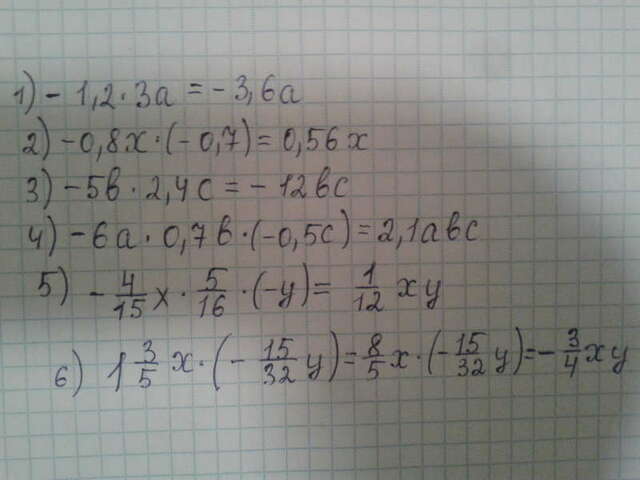 1) - 1,2 · 3a = - 3,6a
2) -0,8x · (-0,7) = 0,56x
3) -5b · 2,4c = - 12bc
4) -6a · 0,7b · (-0,5c) = 2,1abc
5) - 4/15 x · 5/16 · (-y) = 1/12 xy
6) 1 3/5 x · (- 15/32 y) = 8/5 x · (- 15/32 y) = - 3/4 xy